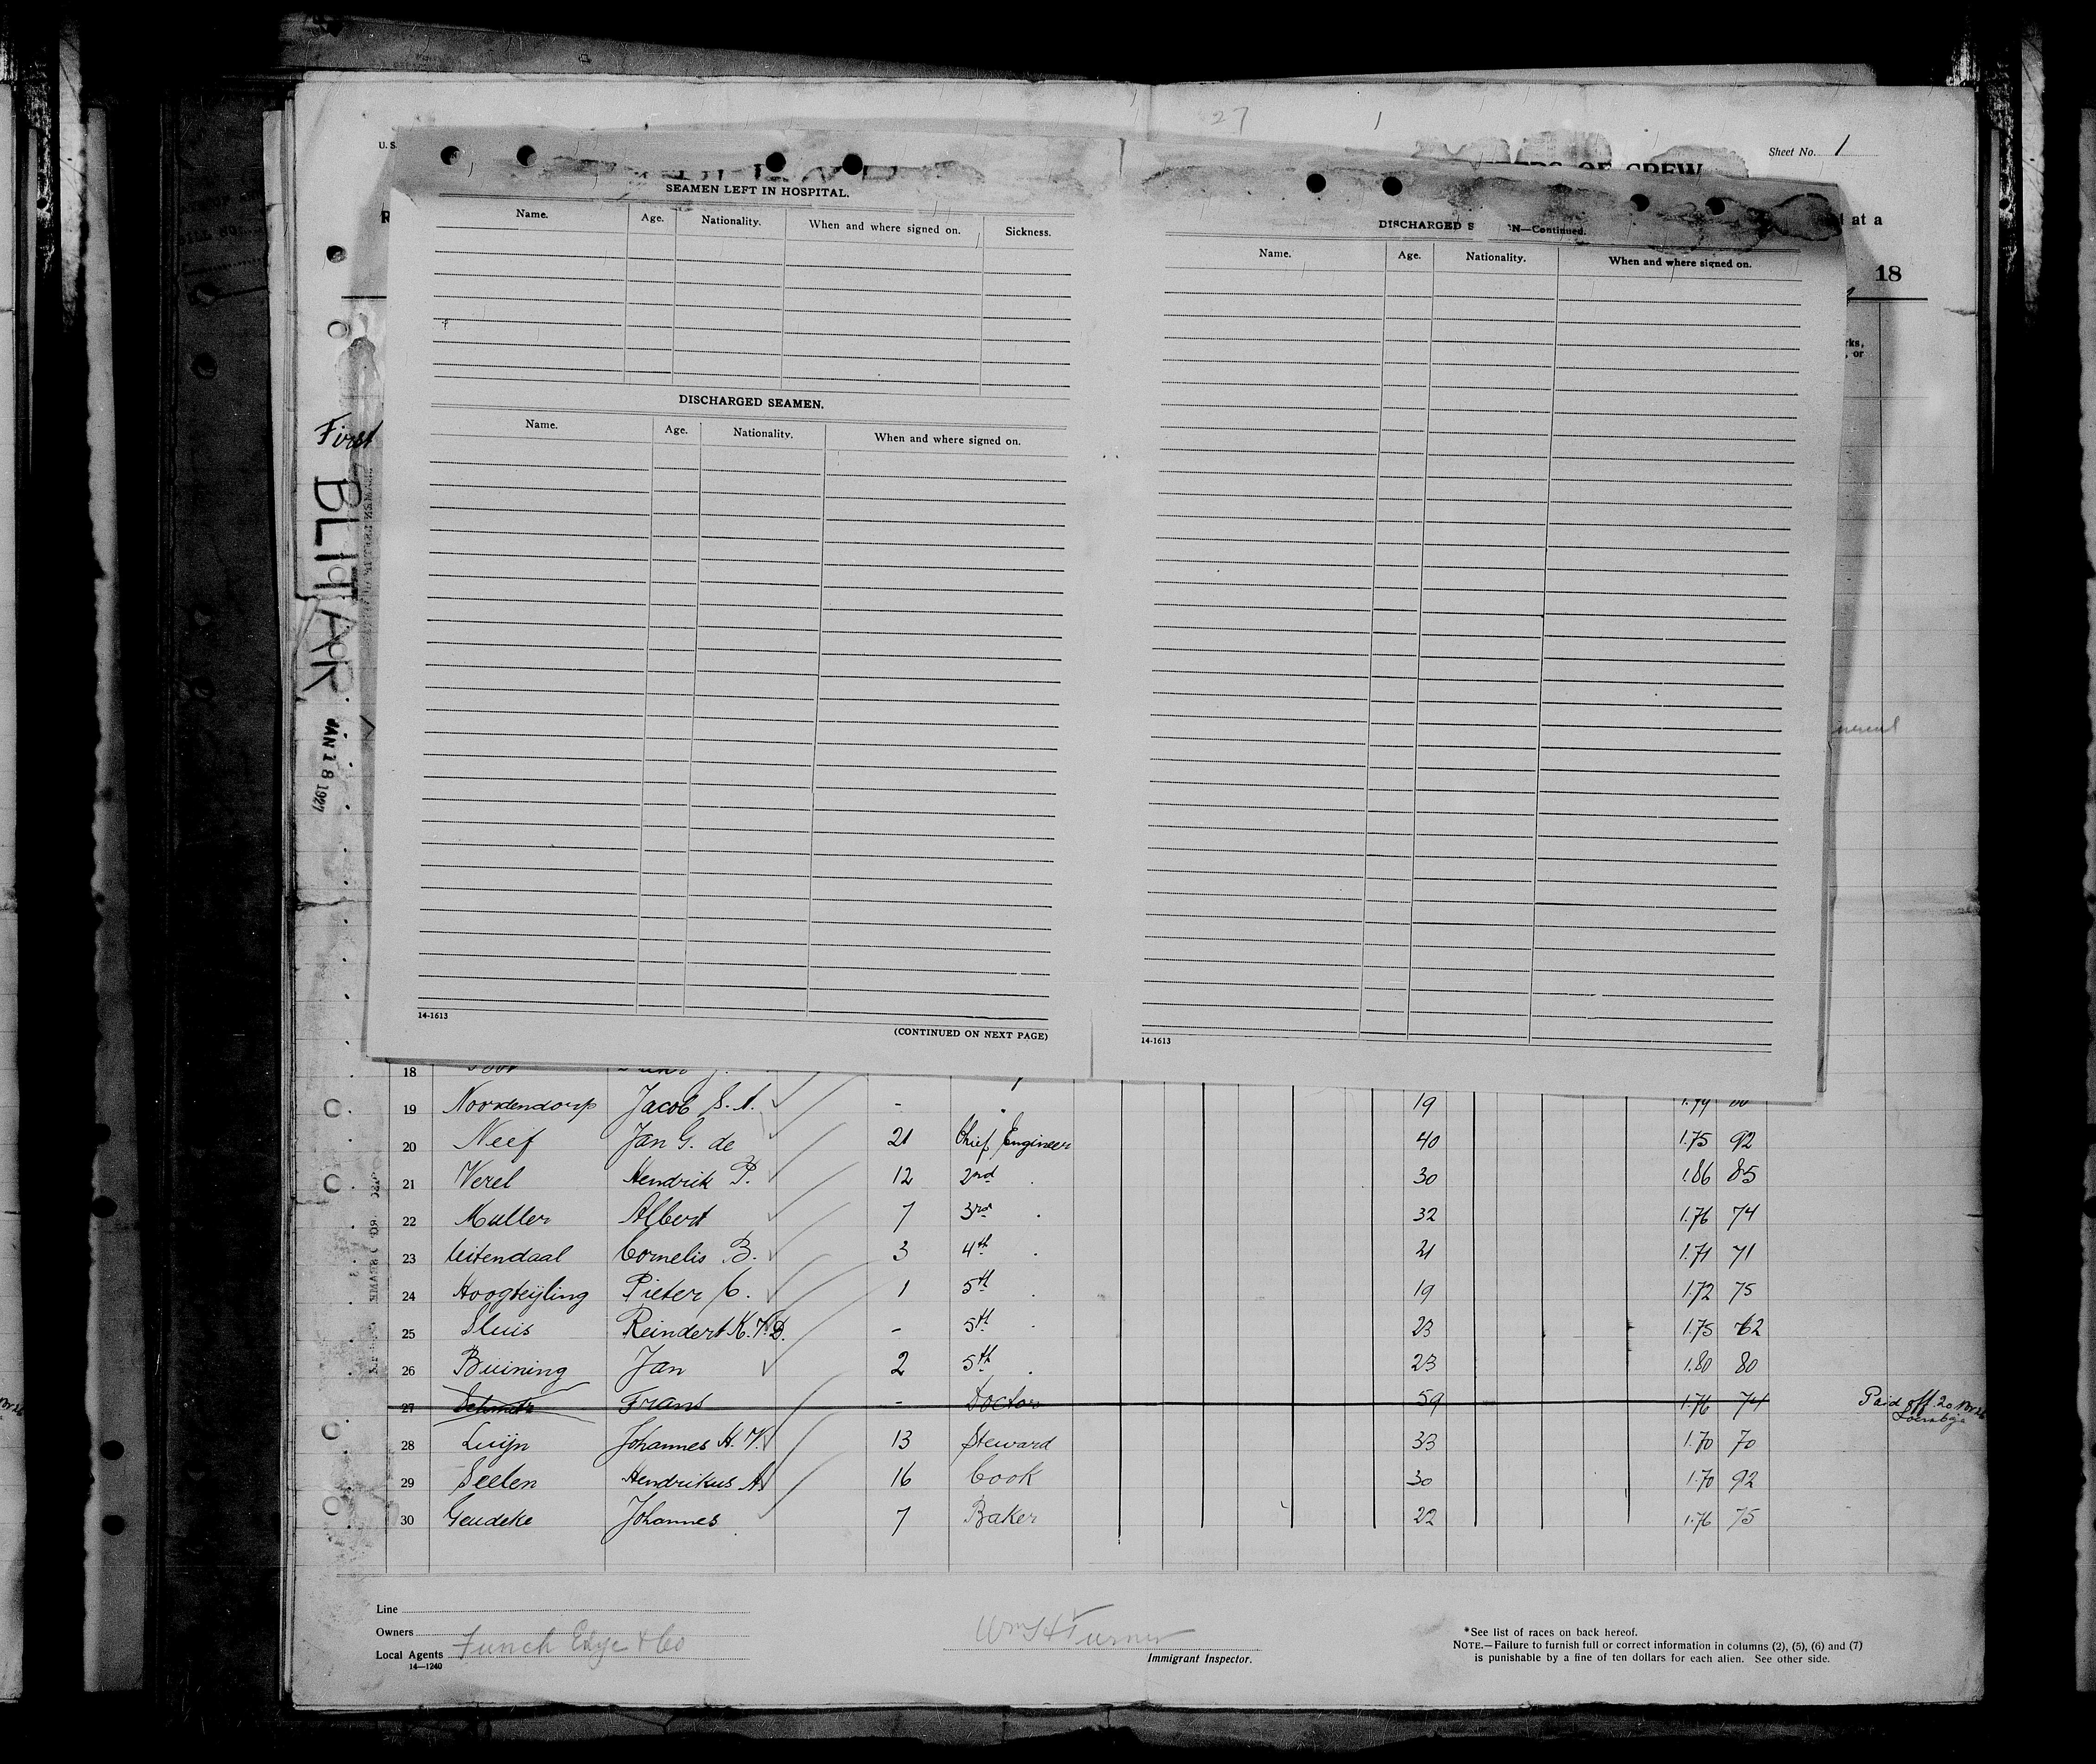 27 1
U. S.
Sheet No. 1
OF CREW
at a
18
First
BLITAR
JAN 18 1927
SEAMEN LEFT IN HOSPITAL.
Name. Age. Nationality. When and where signed on. Sickness.
DISCHARGED SEAMEN.
Name. Age. Nationality. When and where signed on.
14-1613
(CONTINUED ON NEXT PAGE)
DISCHARGED S N—Continued.
Name. Age. Nationality. When and where signed on.
14-1613
rks,
, or
18
19 Noordendorp Jacob S. A. - 19 1.79
20 Neef Jan G. de 21 Chief Engineer 40 1.75 92
21 Verel Hendrik P. 12 2nd . 30 1.86 85
22 Muller Albert 7 3rd . 32 1.76 74
23 Uitendaal Cornelis B. 3 4th . 21 1.71 71
24 Hoogteijling Pieter C. 1 5th . 19 1.72 75
25 Sluis Reindert K. V. D. - 5th . 23 1.75 62
26 Buining Jan 2 5th . 23 1.80 80
27 Schmitz Frans - Doctor 59 1.76 74 Paid off 20 Nov 26
Soerabaja
28 Luijn Johannes H. V. 13 Steward 33 1.70 70
29 Seelen Hendrikus A. 16 Cook 30 1.70 92
30 Geudeke Johannes 7 Baker 22 1.76 75
Line
Owners
Local Agents Funch Edye & Co
14—1240
Wm H Turner
Immigrant Inspector.
*See list of races on back hereof.
NOTE.—Failure to furnish full or correct information in columns (2), (5), (6) and (7)
is punishable by a fine of ten dollars for each alien. See other side.